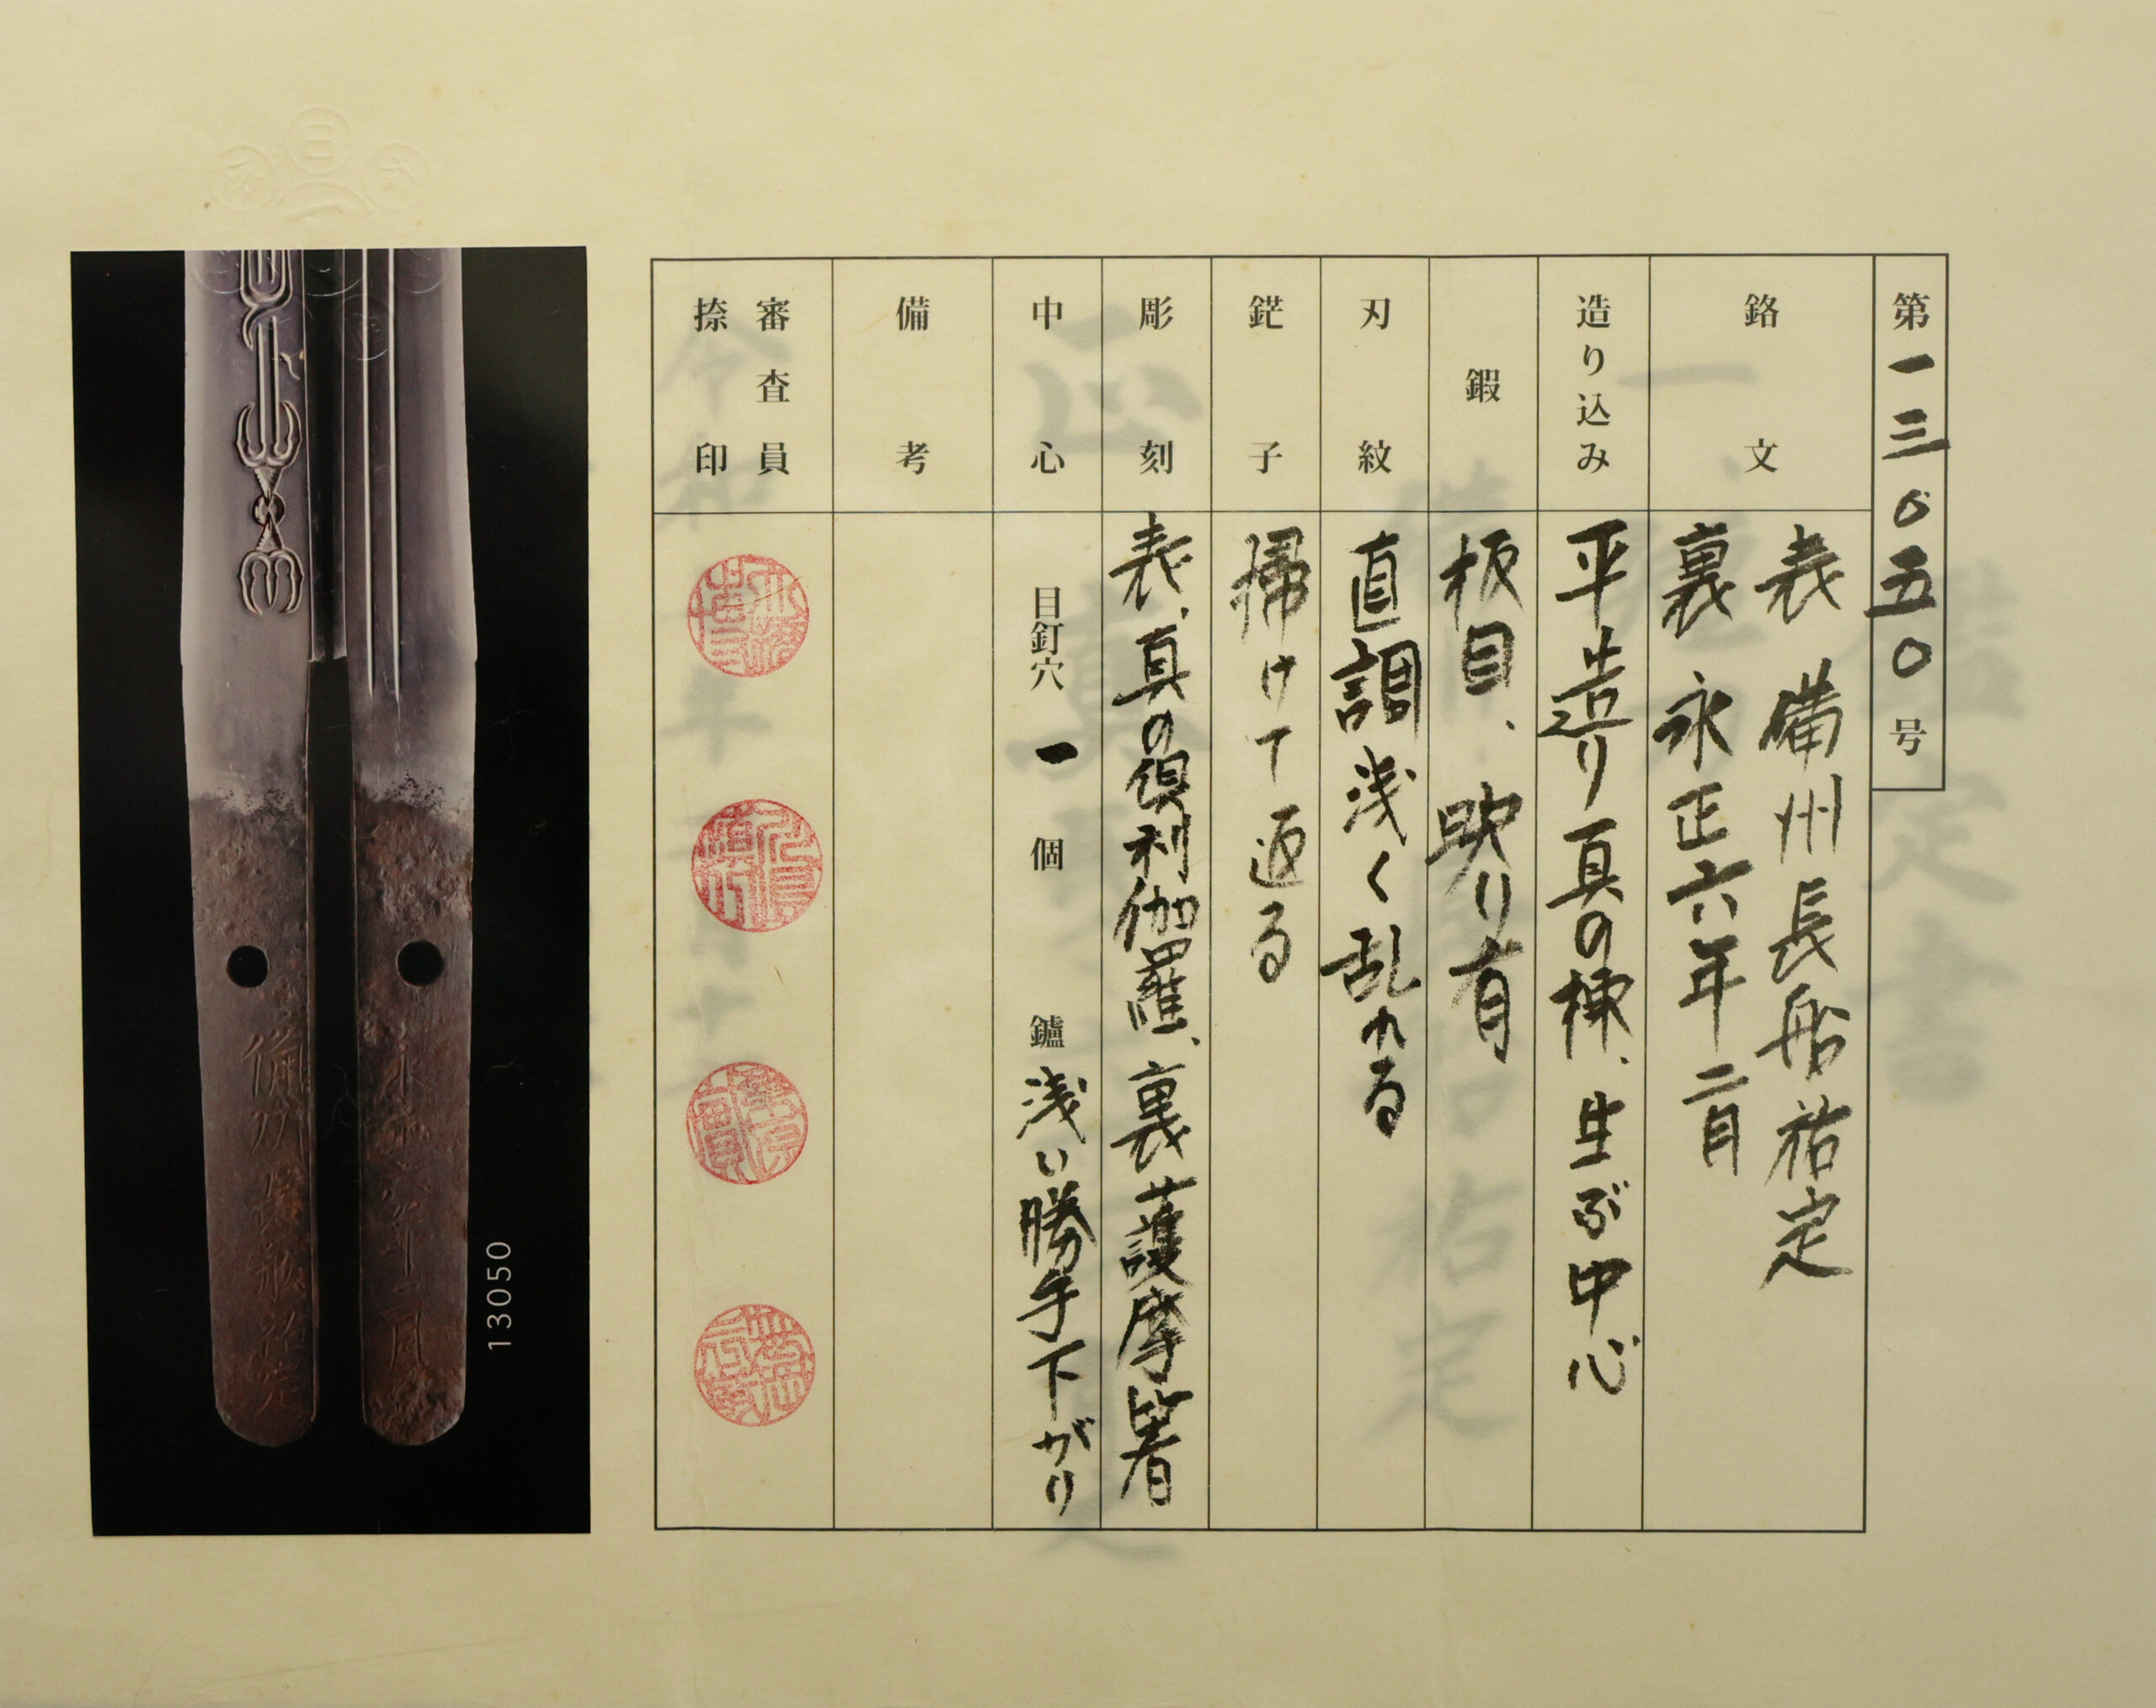 第一三〇五〇号
銘文
表 備州長船祐定
裏 永正六年二月
造り込み
平造り真の棟、生ぶ中心
鍛
板目、映り有
刃紋
直調浅く乱れる
鋩子
掃けて返る
彫刻
表、真の倶利伽羅、裏護摩箸
中心
目釘穴 一 個 鑢 浅い勝手下がり
備考
審査員
捺印
13050